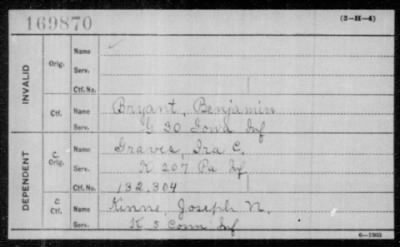 169870 (3-H-4)
INVALID
Orig. Name
Serv.
Ctf. No.
Ctf. Name Bryant, Benjamin
Serv. G 30 Iowa Inf
DEPENDENT
C. Orig. Name Graves, Ira C.
Serv. K 207 Pa Inf
Ctf. No. 132.304
C. Ctf. Name Kinne, Joseph N.
Serv. K 8 Conn Inf
6—1903